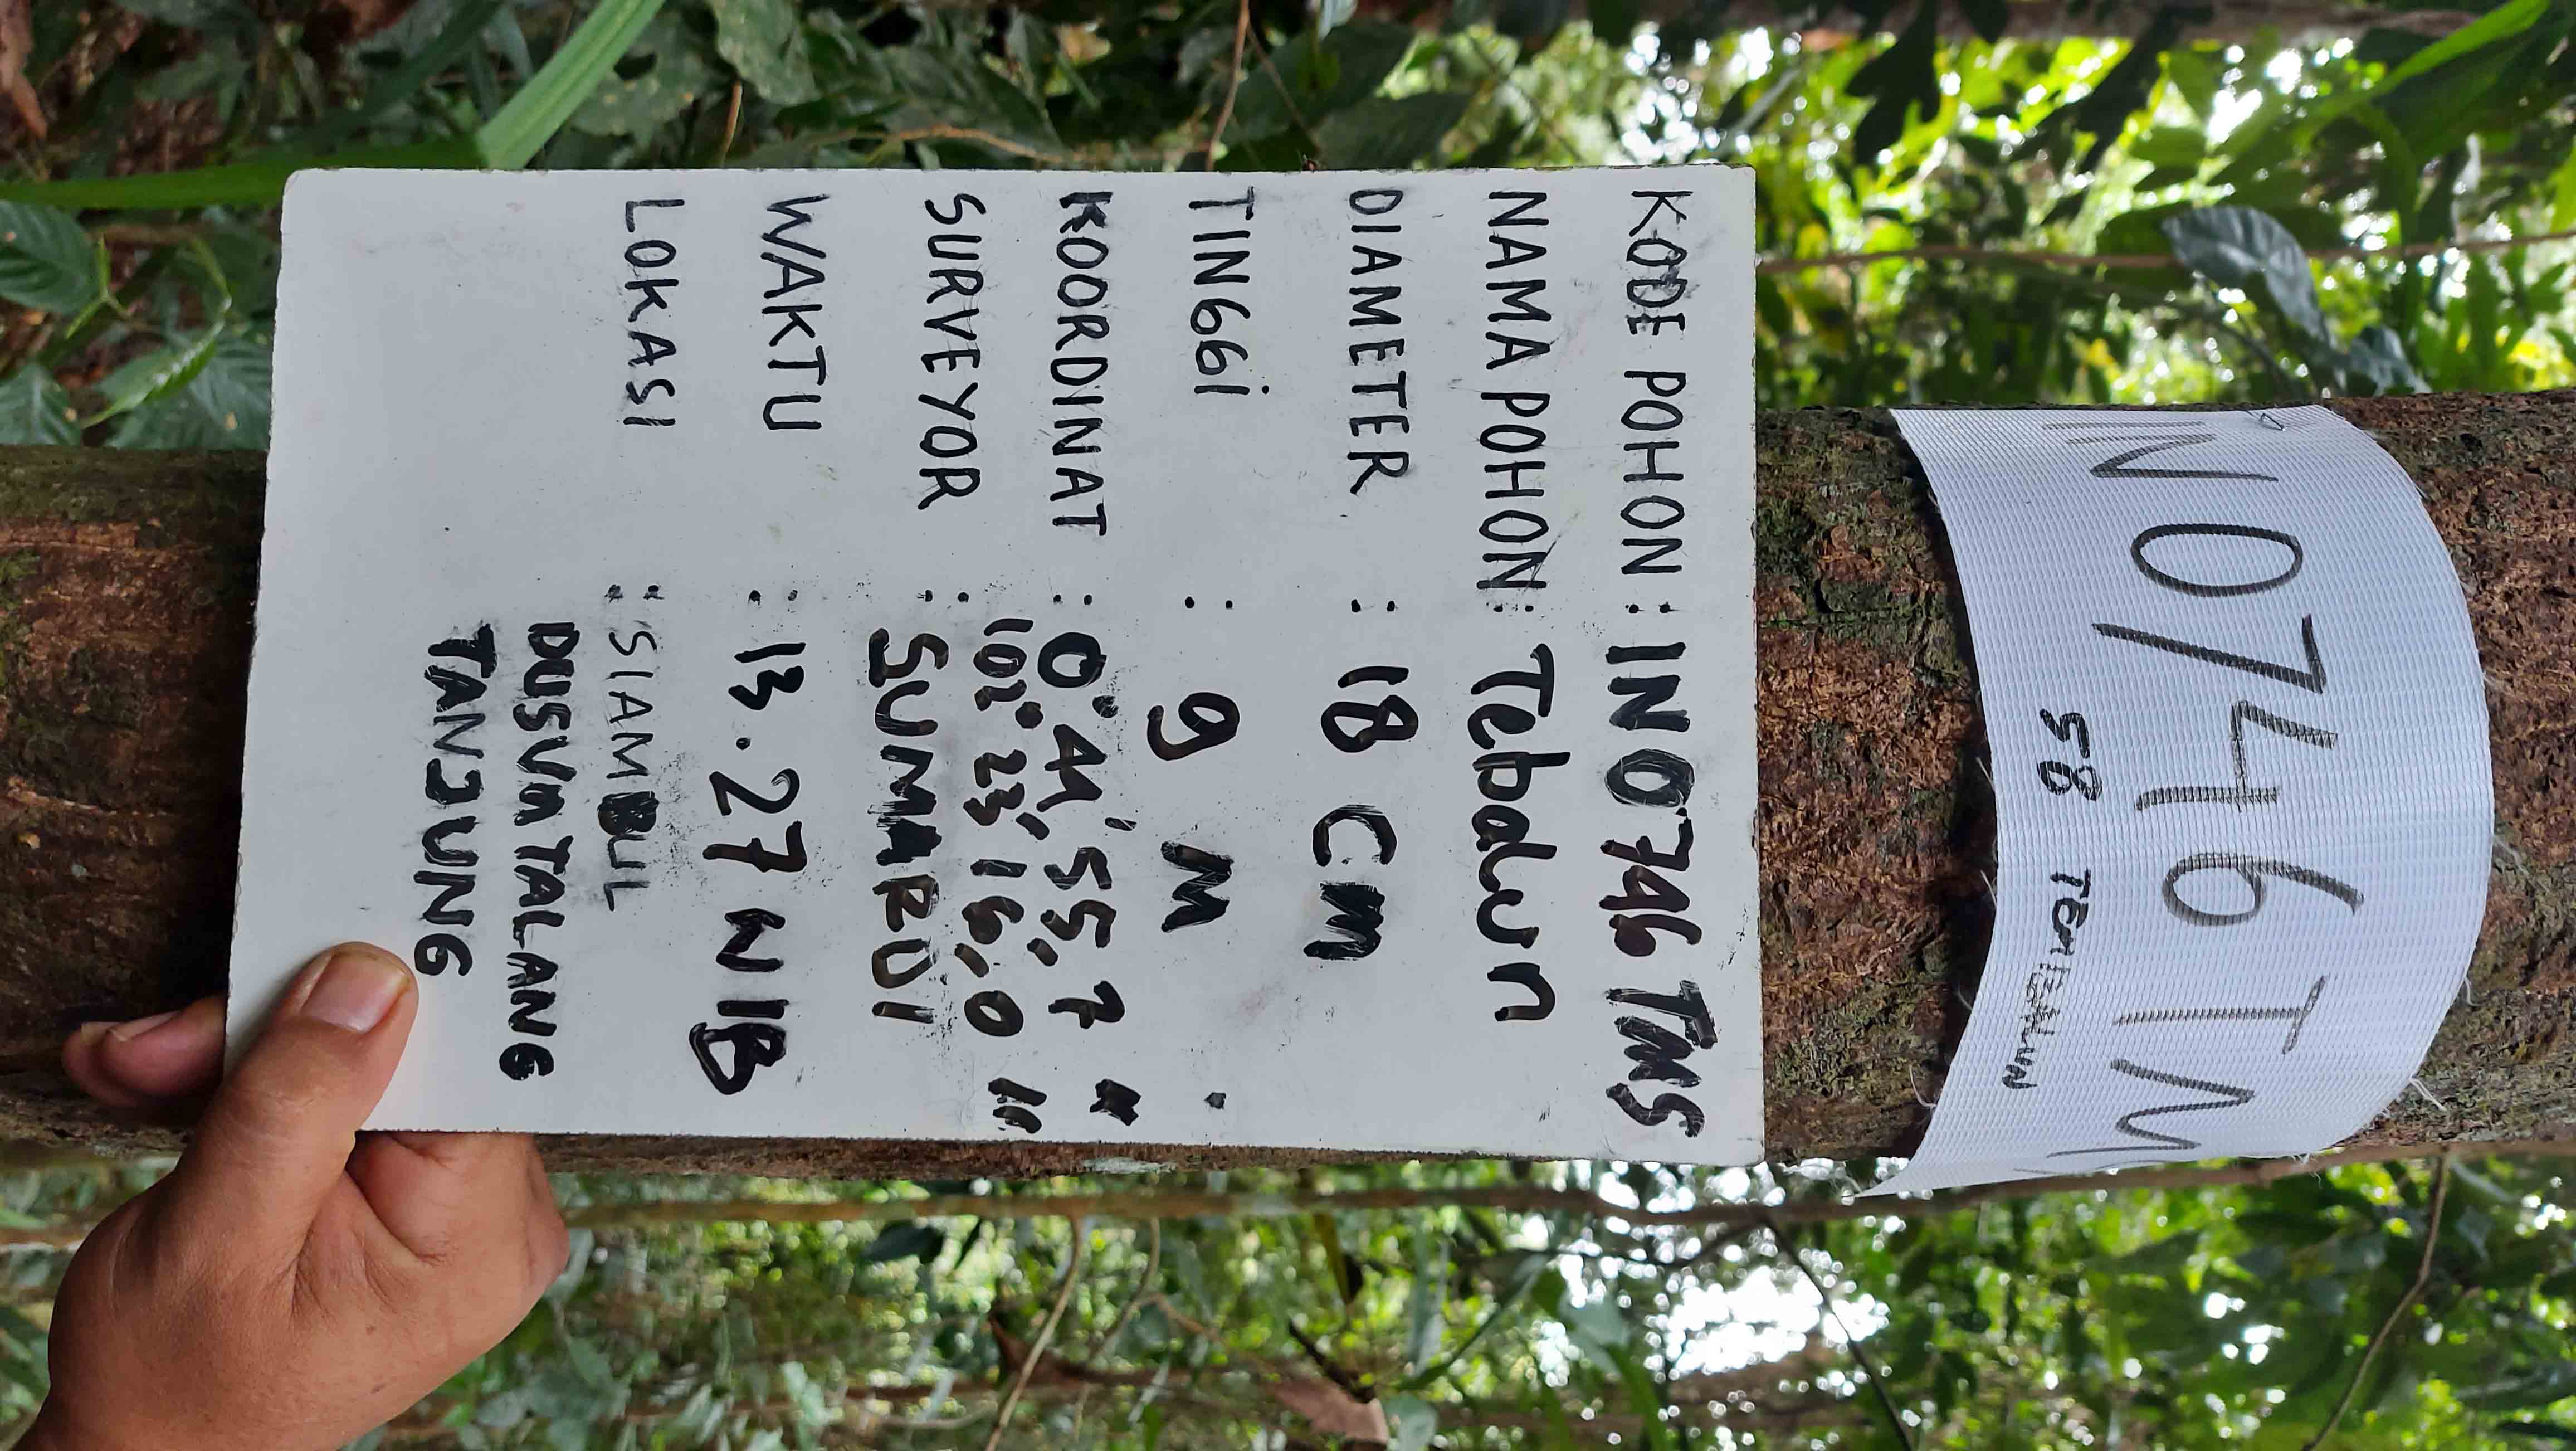 IN 0746 TM
58 TEMBALUN
KODE POHON : IN 0746 TMS
NAMA POHON : Tebalun
DIAMETER : 18 cm
TINGGI : 9 M
KOORDINAT : 0° 41' 55,7 "
102° 23' 16,0 "
SURVEYOR : SUMARDI
WAKTU : 13.27 WIB
LOKASI : SIAMBUL
DUSUN TALANG
TANJUNG